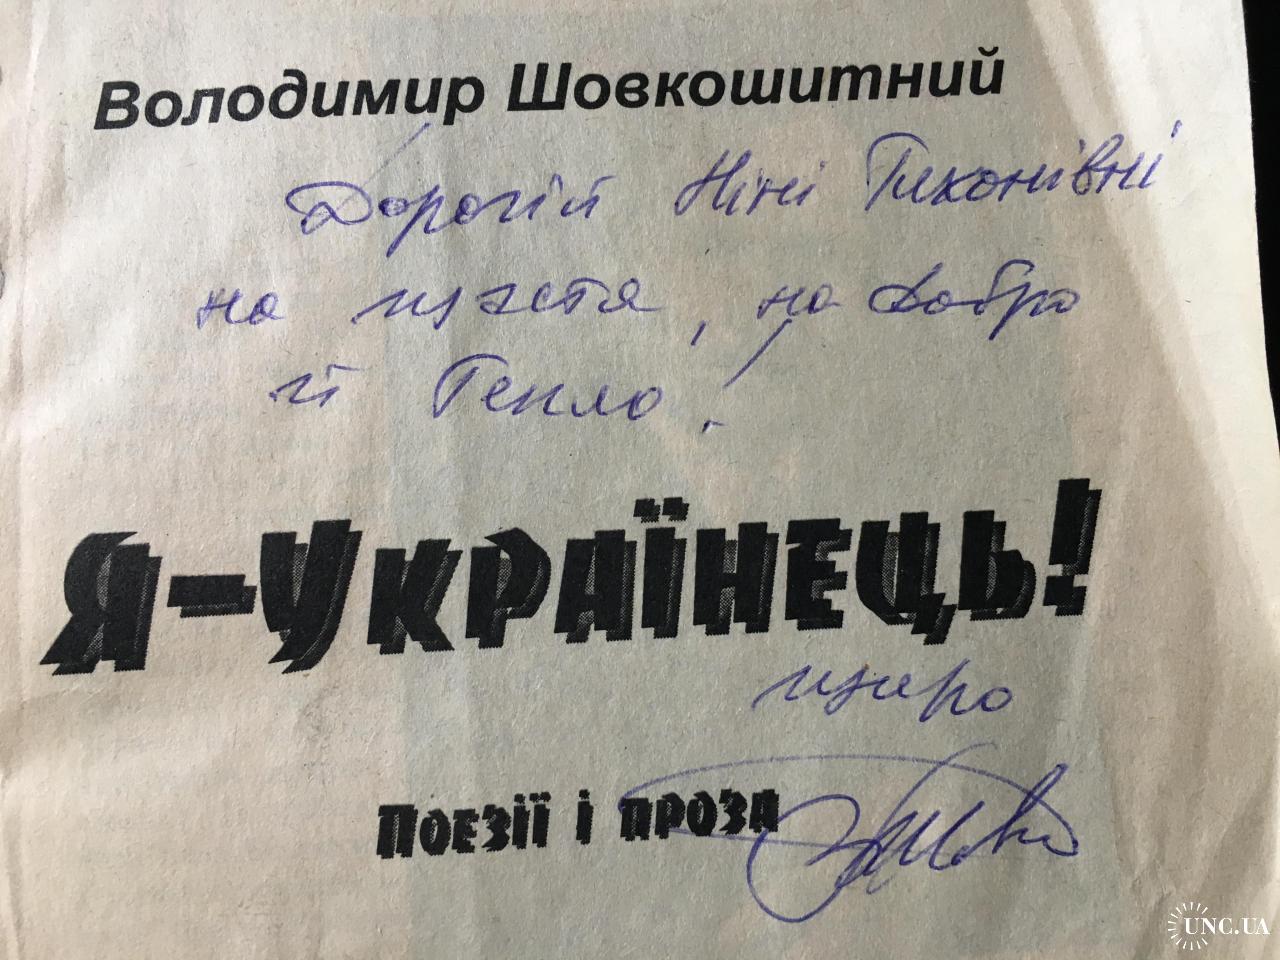 Володимир Шовкошитний
Дорогій Ніні Тихонівні
на щастя, на добро
й тепло!
Я-УКРАЇНЕЦЬ!
щиро
ПОЕЗІЇ І ПРОЗА
UNC.UA